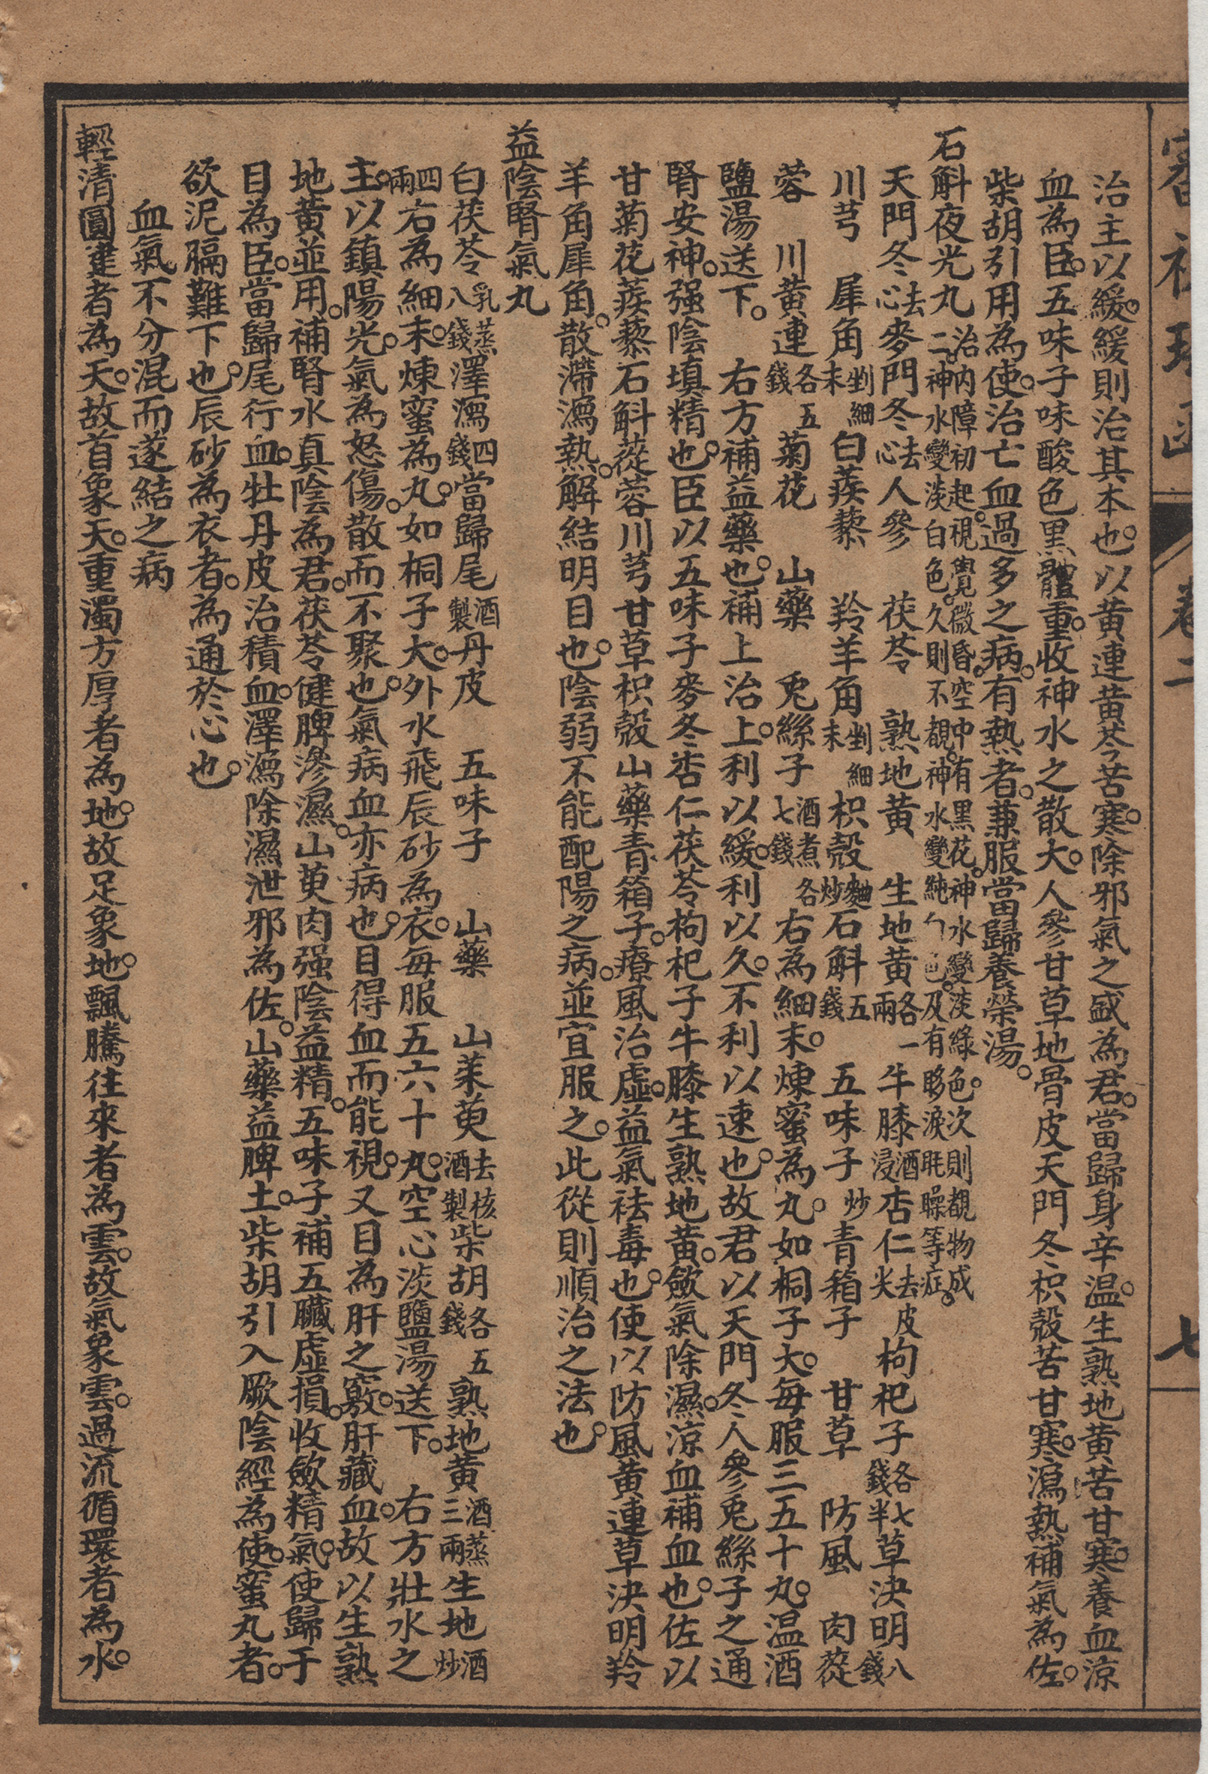 治主以緩。緩則治其本也。以黃連黃芩苦寒。除邪氣之盛為君。當歸身辛温。生熟地黃苦甘寒。養血涼
血為臣。五味子味酸色黑體重。收神水之散大。人參甘草地骨皮天門冬枳殼苦甘寒。瀉熱補氣為佐。
柴胡引用為使。治亡血過多之病。有熱者。兼服當歸養榮湯。
石斛夜光丸 治內障初起。視覺微昏。空中有黑花。神水變淡綠色。次則覩物成二。神水變淡白色。久則不覩。神水變純白色。及有眵淚眊矂等症。
天門冬去心 麥門冬去心 人參 茯苓 熟地黃 生地黃各一兩 牛膝酒浸 杏仁去皮尖 枸杞子各七錢半 草決明八錢
川芎 犀角剉細末 白蒺藜 羚羊角剉細末 枳殼麵炒 石斛五錢 五味子炒 青箱子 甘草 防風 肉蓯
蓉 川黃連各五錢 菊花 山藥 兎絲子酒煮各七錢 右為細末。煉蜜為丸。如桐子大。每服三五十丸。温酒
鹽湯送下。 右方補益藥也。補上治上。利以緩。利以久。不利以速也。故君以天門冬人參兎絲子之通
腎安神。强陰填精也。臣以五味子麥冬杏仁茯苓枸杞子牛膝生熟地黃。斂氣除濕。涼血補血也。佐以
甘菊花蒺藜石斛蓯蓉川芎甘草枳殼山藥青箱子。療風治虛。益氣祛毒也。使以防風黃連草決明羚
羊角犀角。散滯瀉熱。解結明目也。陰弱不能配陽之病。並宜服之。此從則順治之法也。
益陰腎氣丸
白茯苓乳蒸八錢 澤瀉四錢 當歸尾酒製 丹皮 五味子 山藥 山茱萸去核酒製 柴胡各五錢 熟地黃酒蒸三兩 生地酒炒
四兩 右為細末。煉蜜為丸。如桐子大。外水飛辰砂為衣。每服五六十丸。空心淡鹽湯送下。 右方壯水之
主。以鎮陽光。氣為怒傷。散而不聚也。氣病血亦病也。目得血而能視。又目為肝之竅。肝藏血。故以生熟
地黃並用。補腎水真陰為君。茯苓健脾滲濕。山萸肉强陰益精。五味子補五臟虛損。收斂精氣。使歸于
目為臣。當歸尾行血。牡丹皮治積血。澤瀉除濕泄邪為佐。山藥益脾土。柴胡引入厥陰經為使。蜜丸者。
欲泥膈難下也。辰砂為衣者。為通於心也。
血氣不分混而遂結之病
輕清圓建者為天。故首象天。重濁方厚者為地。故足象地。飄騰往來者為雲。故氣象雲。過流循環者為水。
卷二
七